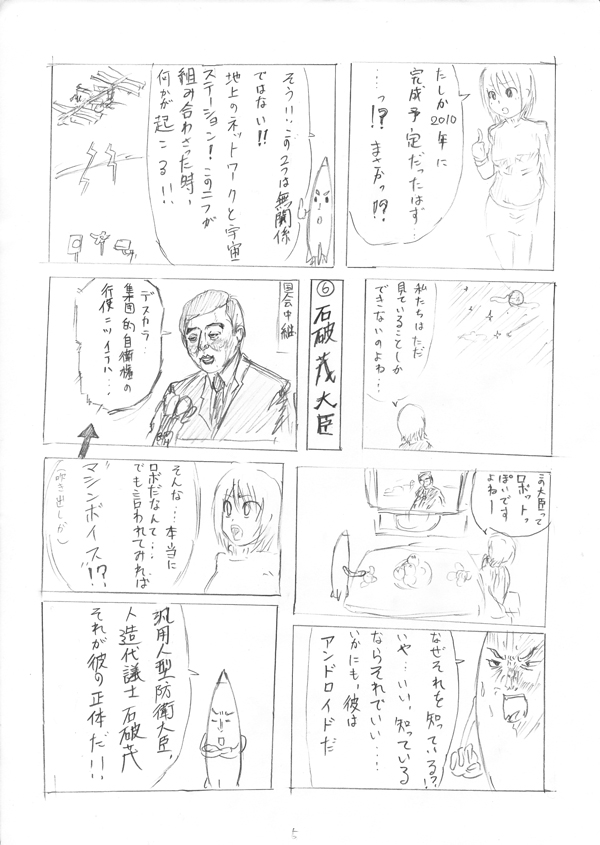 たしか2010年に
完成予定だったはず…
…っ!? まさかっ!?
そう!!この2つは無関係
ではない!!
地上のネットワークと宇宙
ステーション!この二つが
組み合わさった時、
何かが起こる!!
私たちはただ
見ていることしか
できないのよね…
⑥石破茂大臣
国会中継
デスカラ…
集団的自衛権の
行使ニツイテハ…
この大臣って
ロボットっ
ぽいですよねー
そんな…本当に
ロボだなんて…
でも言われてみれば
マシンボイス!?
(吹き出しが)
なぜそれを知っている?!
いや…いい、知っている
ならそれでいい…
いかにも、彼は
アンドロイドだ
汎用人型防衛大臣、
人造代議士 石破茂
それが彼の正体だ!!
5